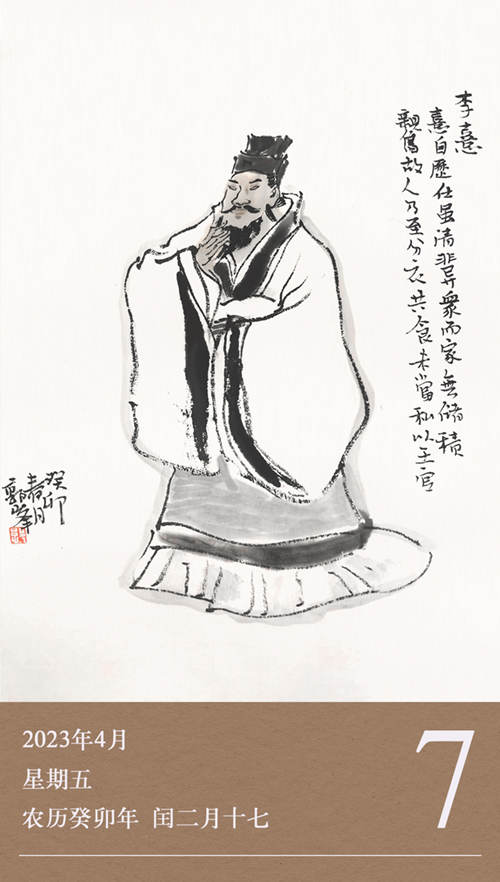 李憙
憙自歷仕虽清非异衆而家無儲積
親舊故人乃至分衣共食未嘗私以王官
癸卯
春月
2023年4月
星期五
农历癸卯年 闰二月十七
7